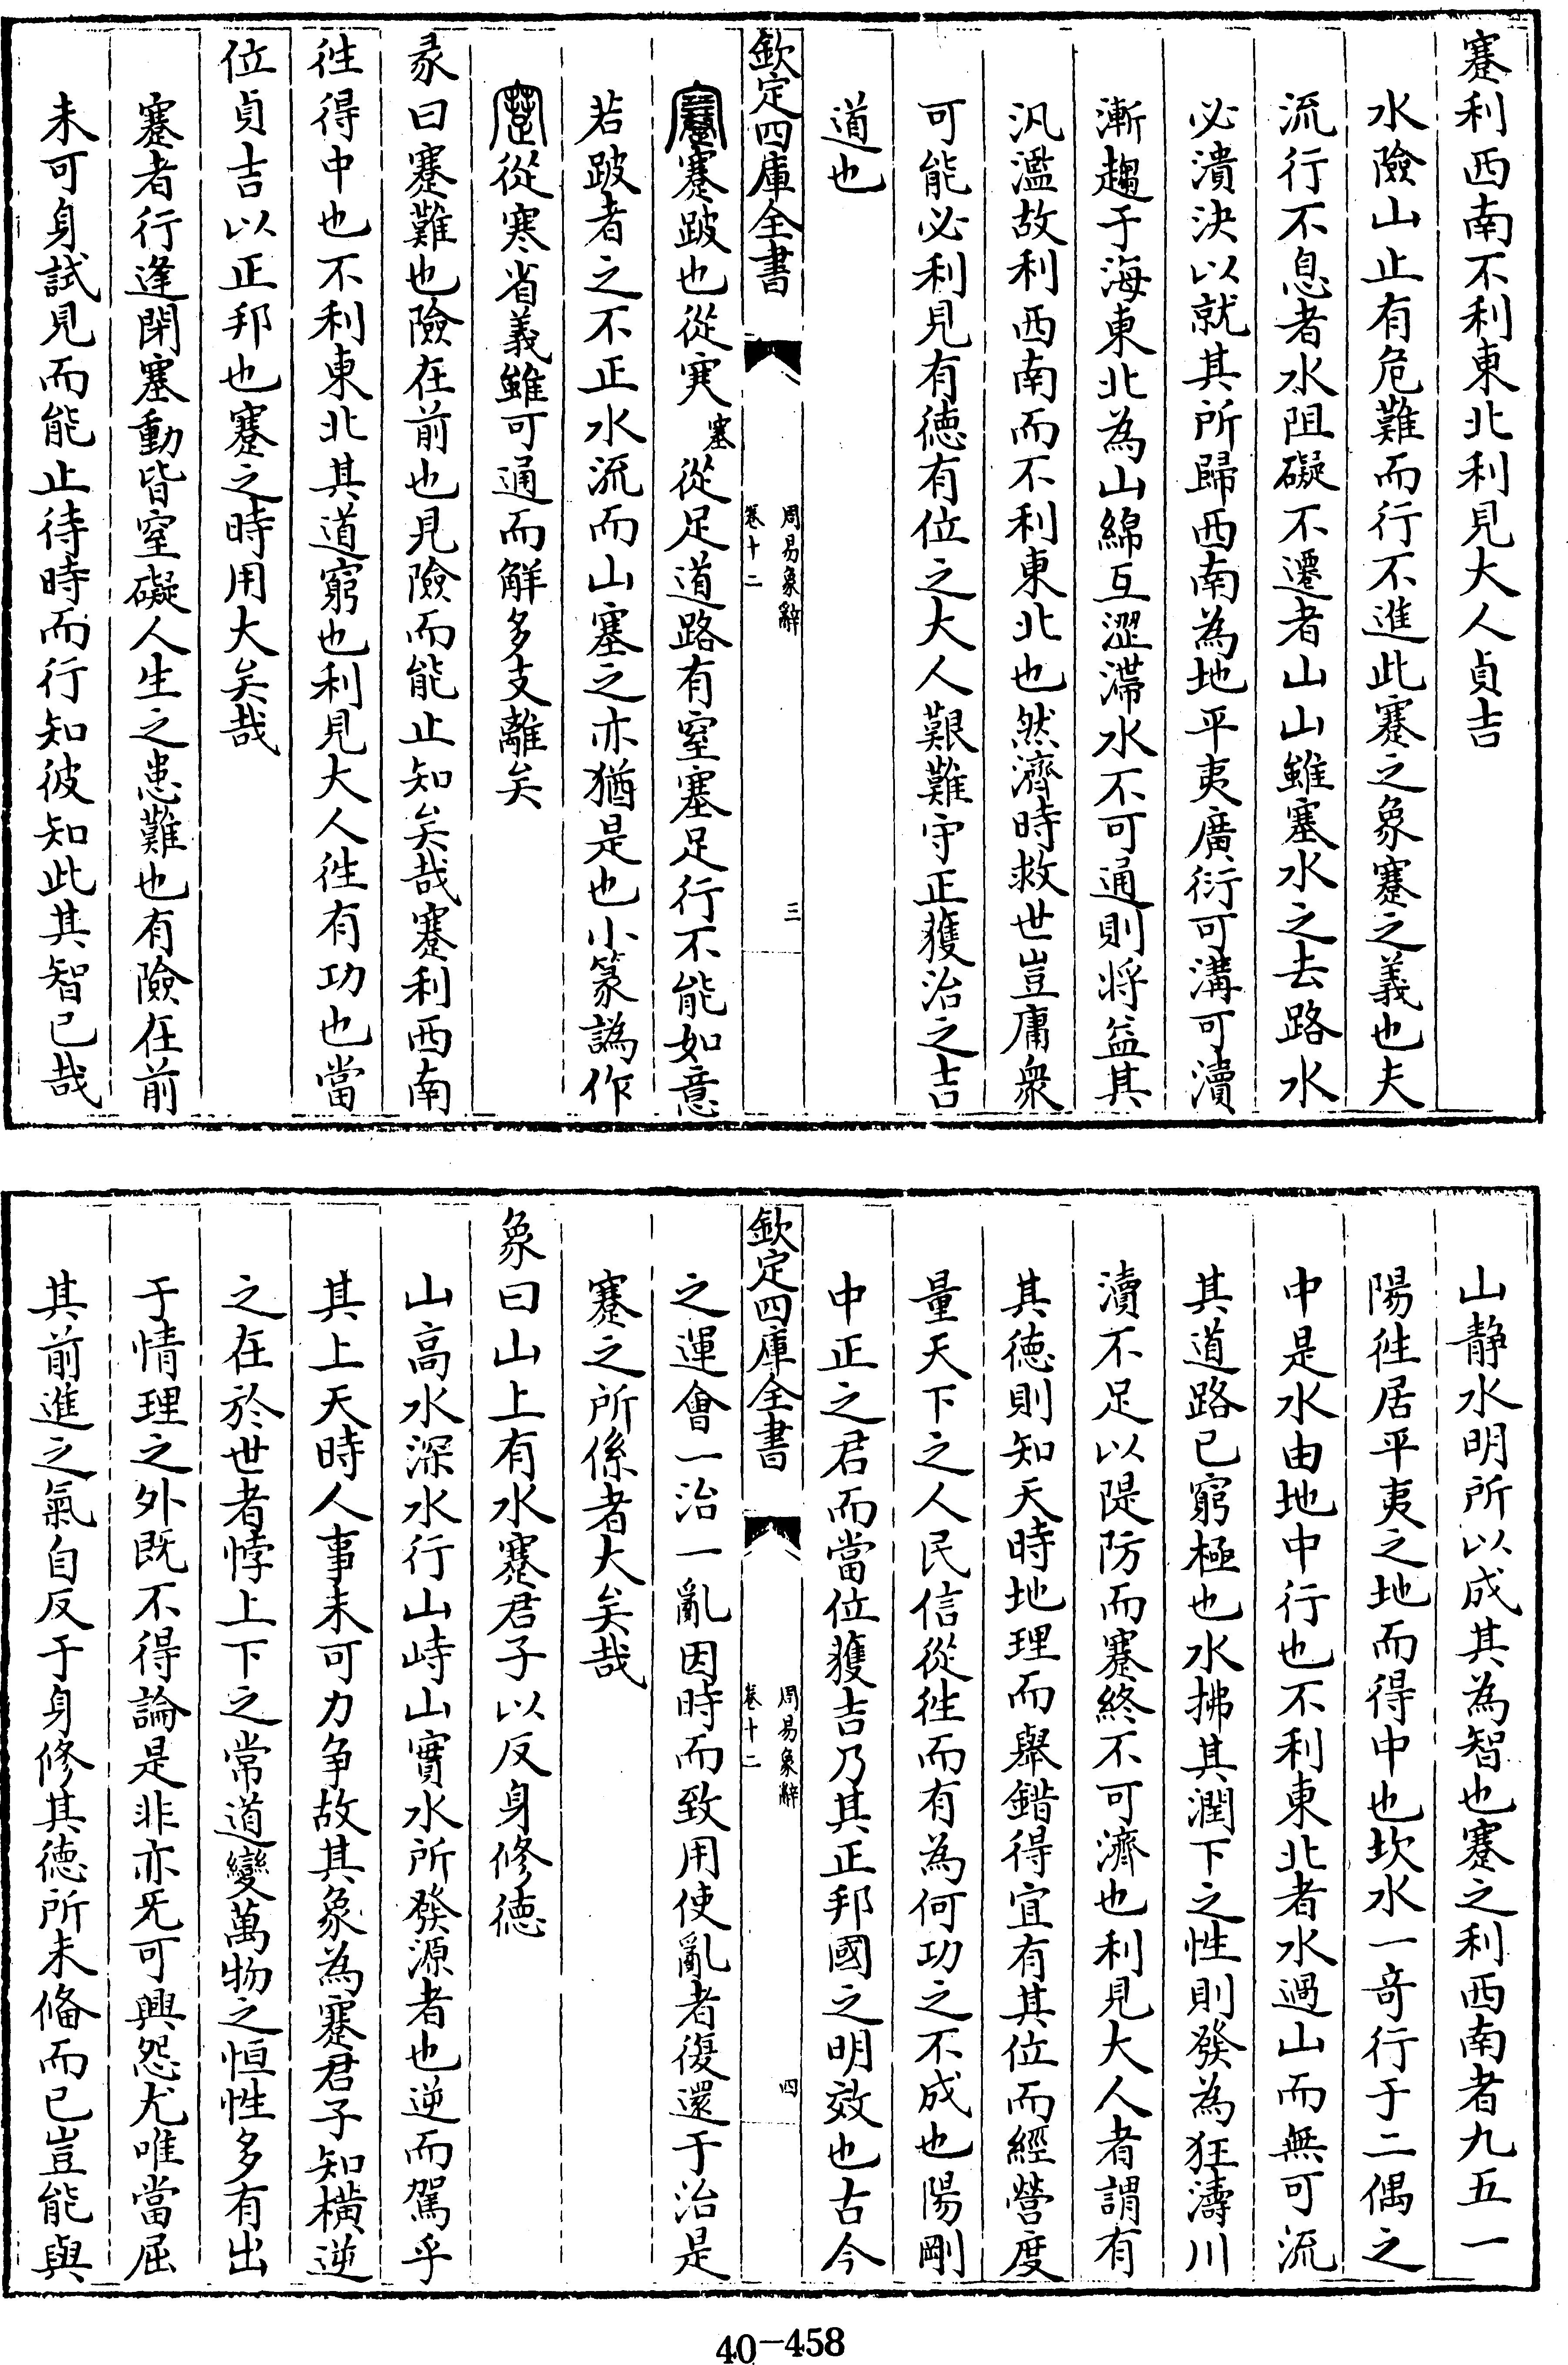 蹇利西南不利東北利見大人貞吉
水險山止有危難而行不進此蹇之象蹇之義也夫
流行不息者水阻礙不遷者山山雖塞水之去路水
必潰決以就其所歸西南為地平夷廣衍可溝可瀆
漸趨于海東北為山綿亙澀滯水不可通則將益其
汎濫故利西南而不利東北也然濟時救世豈庸衆
可能必利見有德有位之大人艱難守正獲治之吉
道也
欽定四庫全書
周易象辭
卷十二
三
蹇跛也從寒塞從足道路有窒塞足行不能如意
若跛者之不正水流而山塞之亦猶是也小篆譌作
從寒省義雖可通而解多支離矣
彖曰蹇難也險在前也見險而能止知矣哉蹇利西南
徃得中也不利東北其道窮也利見大人徃有功也當
位貞吉以正邦也蹇之時用大矣哉
蹇者行逢閉塞動皆窒礙人生之患難也有險在前
未可身試見而能止待時而行知彼知此其智已哉
山静水明所以成其為智也蹇之利西南者九五一
陽徃居平夷之地而得中也坎水一奇行于二偶之
中是水由地中行也不利東北者水過山而無可流
其道路已窮極也水拂其潤下之性則發為狂濤川
瀆不足以隄防而蹇終不可濟也利見大人者謂有
其德則知天時地理而舉錯得宜有其位而經營度
量天下之人民信從徃而有為何功之不成也陽剛
中正之君而當位獲吉乃其正邦國之明效也古今
欽定四庫全書
周易象辭
卷十二
四
之運會一治一亂因時而致用使亂者復還于治是
蹇之所係者大矣哉
象曰山上有水蹇君子以反身修德
山高水深水行山峙山實水所發源者也逆而駕乎
其上天時人事未可力争故其象為蹇君子知橫逆
之在於世者悖上下之常道變萬物之恒性多有出
于情理之外既不得論是非亦旡可興怨尤唯當屈
其前進之氣自反于身修其德所未備而已豈能與
40-458